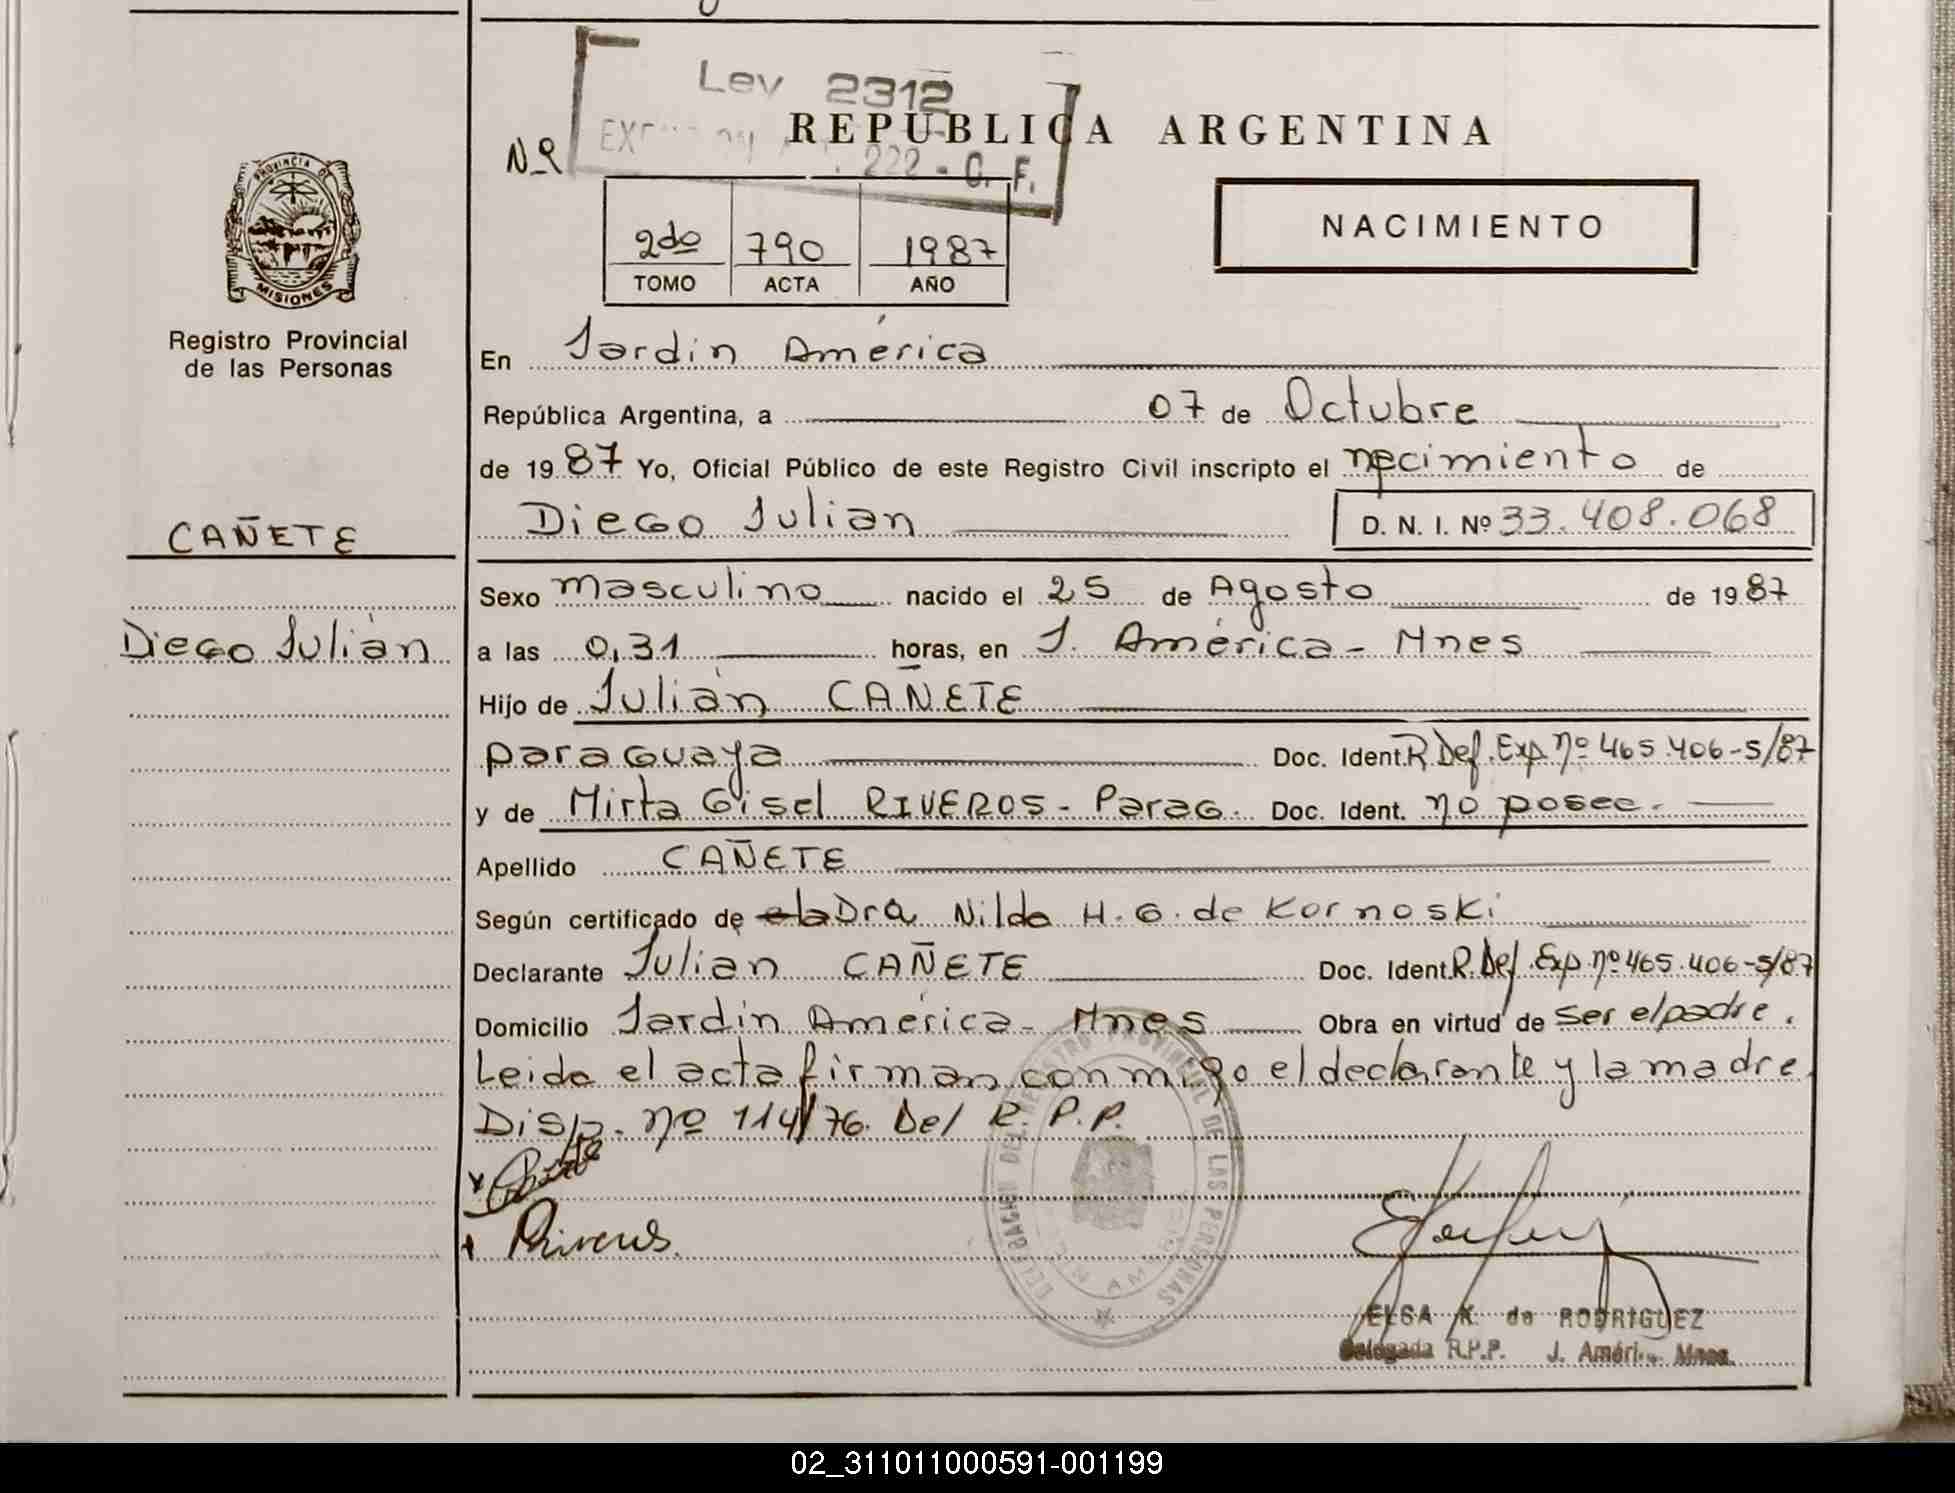 Ley 2312
REPUBLICA ARGENTINA
Nº
222 - C. F.
NACIMIENTO
2do 790 1987
TOMO ACTA AÑO
PROVINCIA DE
MISIONES
Registro Provincial
de las Personas
CAÑETE
Diego Julián
En Jardín América
República Argentina, a 07 de Octubre
de 1987 Yo, Oficial Público de este Registro Civil inscripto el nacimiento de
Diego Julian D. N. I. Nº 33.408.068
Sexo masculino nacido el 25 de Agosto de 1987
a las 0,31 horas, en J. América - Mnes
Hijo de Julián CAÑETE
paraguaya Doc. Ident. R. Def. Exp. nº 465.406-S/87
y de Mirta Gisel RIVEROS - Parag. Doc. Ident. no posee.
Apellido CAÑETE
Según certificado de la Dra Nilda H. G. de Kornoski
Declarante Julián CAÑETE Doc. Ident. R. Def. Exp. nº 465.406-S/87
Domicilio Jardín América - Mnes Obra en virtud de ser el padre.
Leida el acta firman conmigo el declarante y la madre
Disp. nº 114/76. Del R. P. P.
Riveros
DELEGACION DEL REGISTRO PROVINCIAL DE LAS PERSONAS
ELSA K. de RODRIGUEZ
Delegada R.P.P. J. Améri. Mnes.
02_311011000591-001199